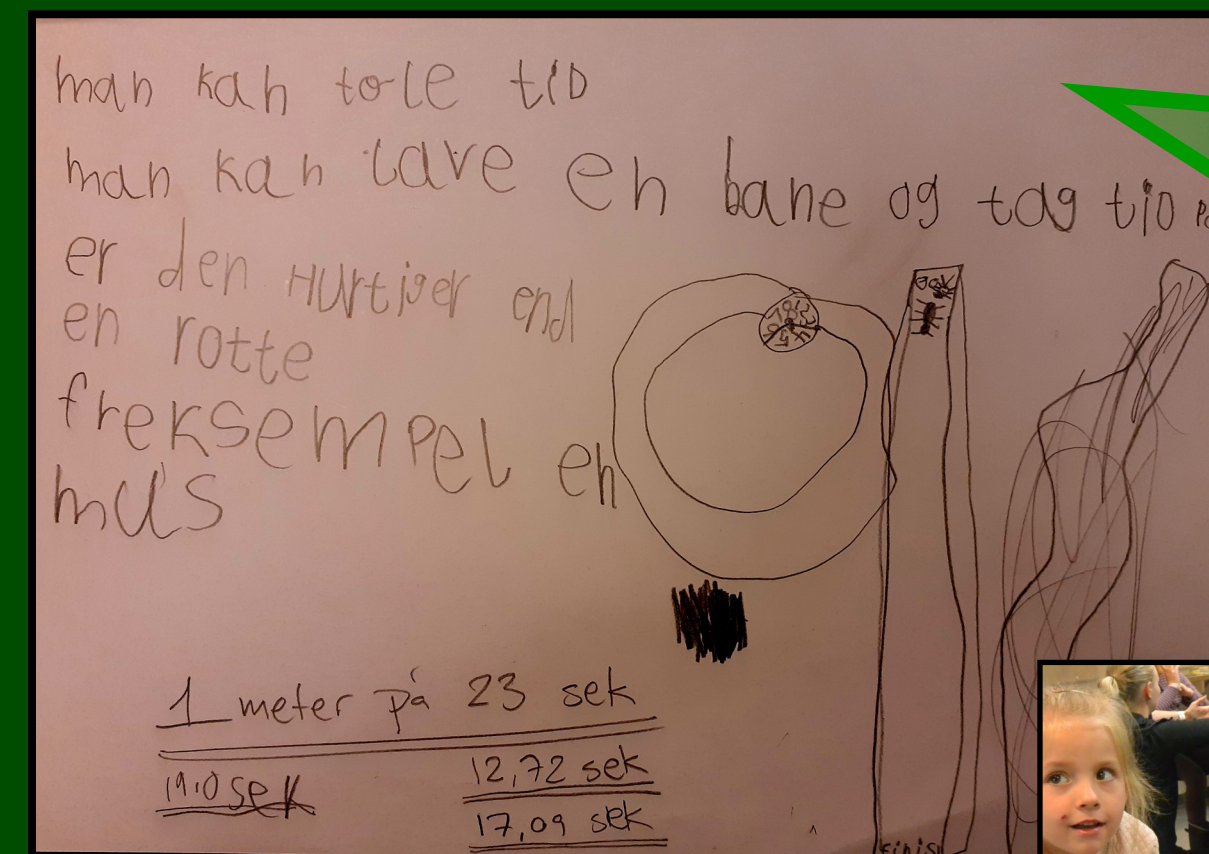 man kan tole tid
man kan lave en bane og tag tid
er den Hurtiger end
en rotte
freksempel en
mus
1 meter på 23 sek
19,0 sek
12,72 sek
17,09 sek
finish